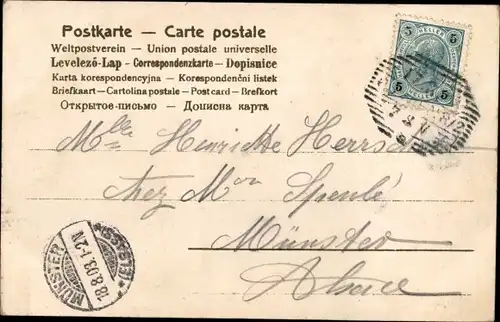 Postkarte — Carte postale
Weltpostverein — Union postale universelle
Levelező-Lap - Correspondenzkarte - Dopisnice
Karta korespondencyjna — Korespondenční lístek
Briefkaart - Cartolina postale - Post card - Brefkort
Открытое-письмо — Дописна карта
5 5
HELLER
5 5
Mlle Henriette Herrsch
chez Mon Spenlé
Münster
Alsace
MÜNSTER
18.8.03.1-2N